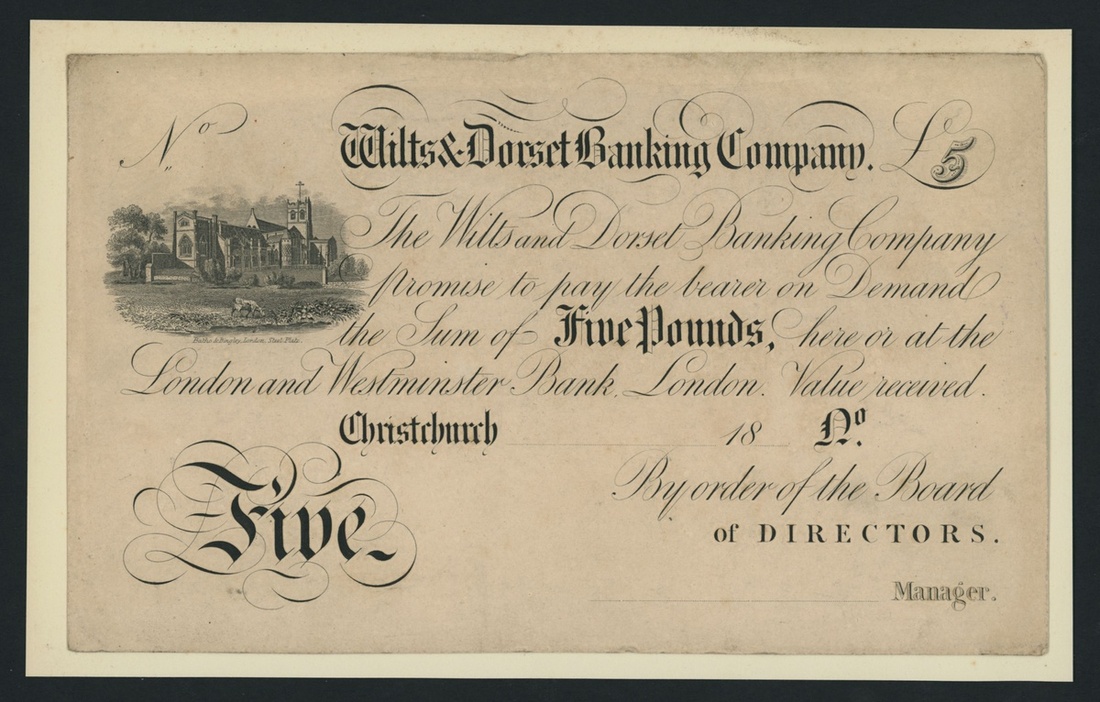 No
Wilts & Dorset Banking Company. £5
The Wilts and Dorset Banking Company
promise to pay the bearer on Demand
the Sum of Five Pounds, here or at the
London and Westminster Bank, London. Value received.
Christchurch 18 No.
Five
By order of the Board
of DIRECTORS.
Manager.